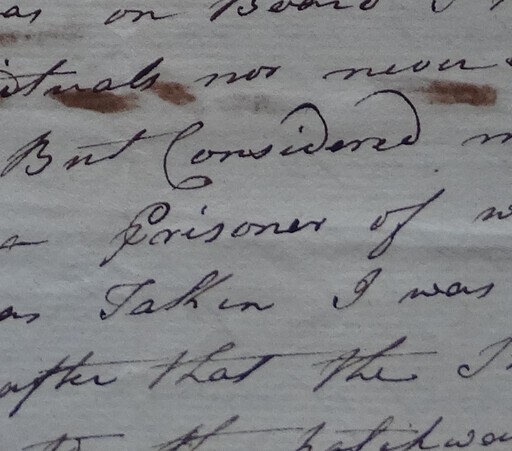 as on Board
nor never
But Considered
a Prisoner of
as Taken I was
after that the
to the